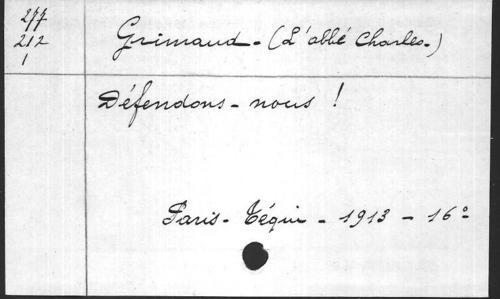 277
212
1
Grimaud - (L'abbé Charles.)
Défendons-nous !
Paris - Téqui - 1913 - 16°